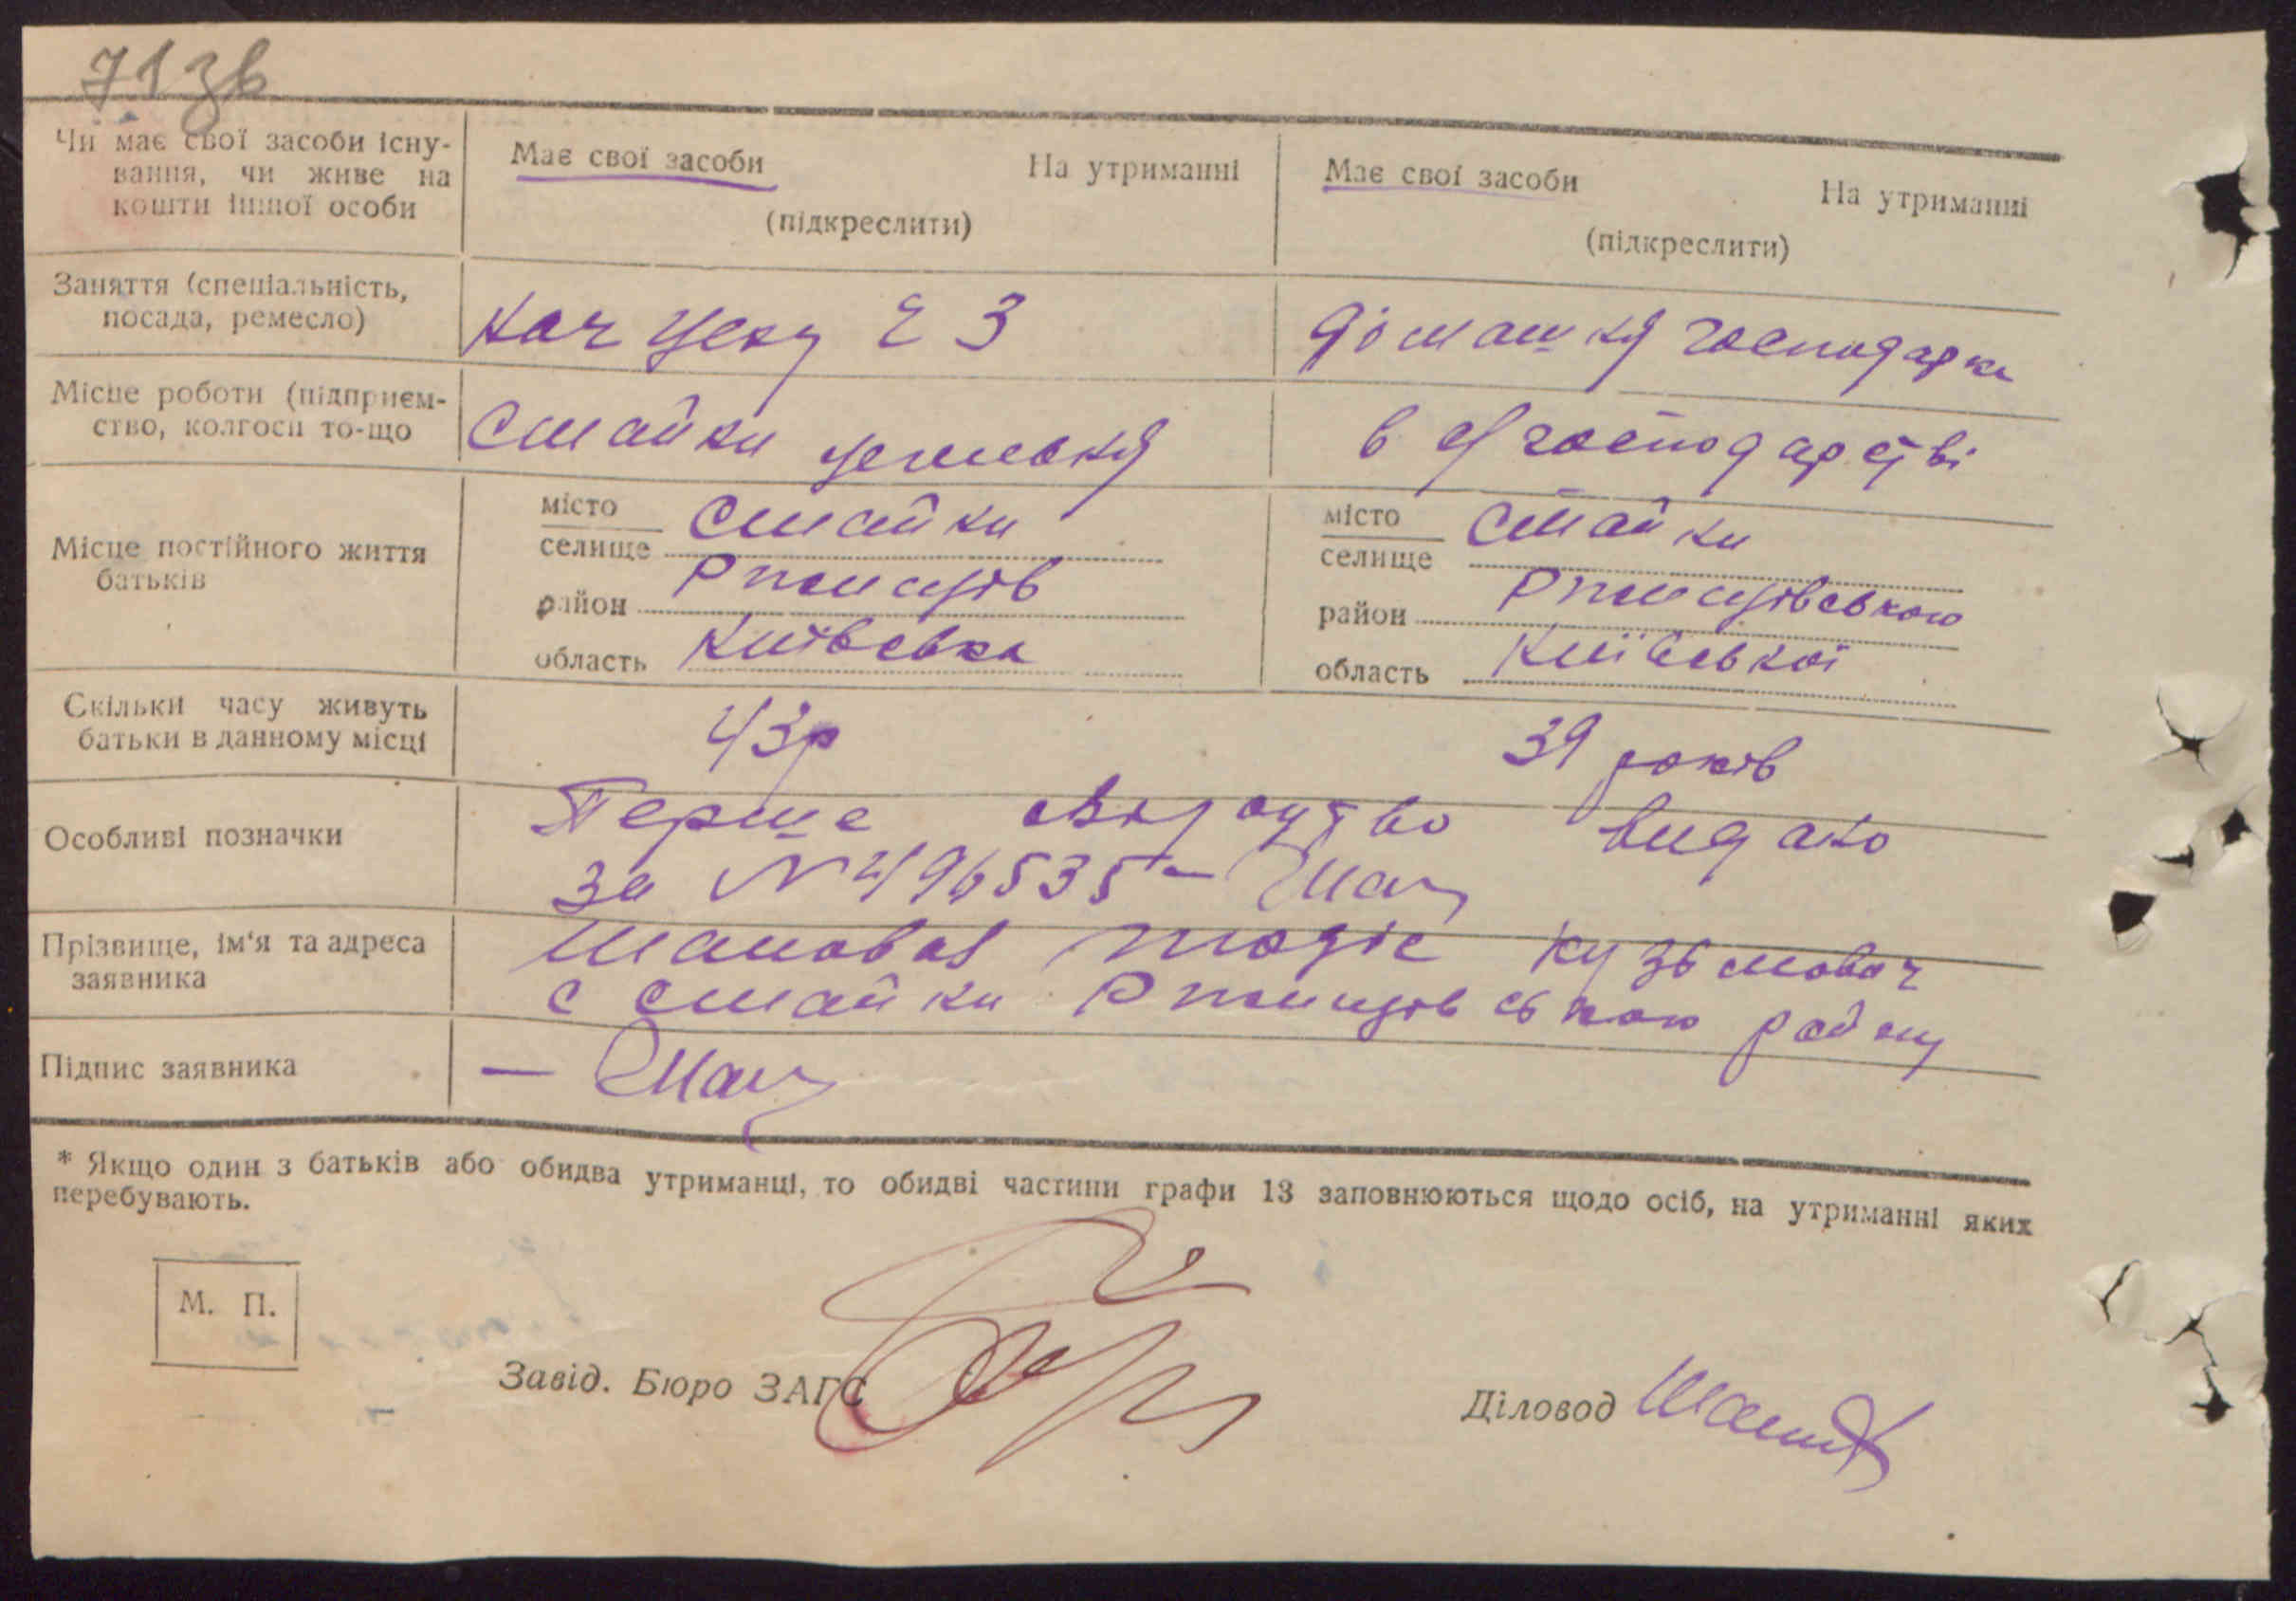 71 зв
Чи має свої засоби існу-
вання, чи живе на
кошти іншої особи
Має свої засоби На утриманні
(підкреслити)
Має свої засоби На утриманні
(підкреслити)
Заняття (спеціальність,
посада, ремесло)
Нач цеху 2 3
домашня господарка
Місце роботи (підприєм-
ство, колгосп то-що
Стайки
в с/господарстві
Місце постійного життя
батьків
місто
селище Стайки
район Ржищів
область Київська
місто
селище Стайки
район Ржищівського
область Київської
Скільки часу живуть
батьки в данному місці
43р
39 років
Особливі позначки
Перше свідоцтво видано
за № 496535 –
Прізвище, ім'я та адреса
заявника
Кузьмович
с Стайки Ржищівського району
Підпис заявника
* Якщо один з батьків або обидва утриманці, то обидві частини графи 13 заповнюються щодо осіб, на утриманні яких
перебувають.
М. П.
Завід. Бюро ЗАГС
Діловод